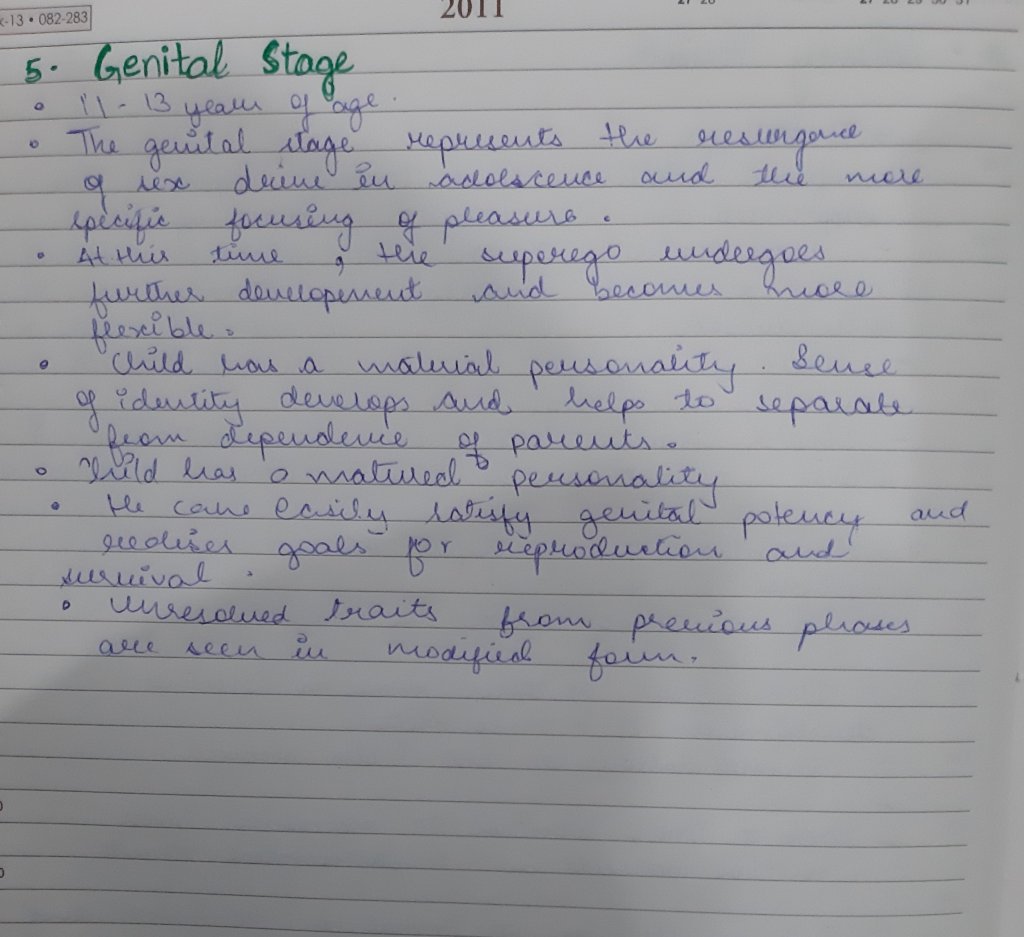 x-13 • 082-283
2011
27 28
27 28 29 30 31
5. Genital Stage
• 11 - 13 years of age.
• The genital stage represents the resurgence
of sex drive in adolescence and the more
specific focusing of pleasure.
• At this time, the superego undergoes
further development and becomes more
flexible.
• Child has a material personality. Sense
of identity develops and helps to separate
from dependence of parents.
• Child has a matured personality
• He can easily satisfy genital potency and
realises goals for reproduction and
survival.
• Unresolved traits from previous phases
are seen in modified form.